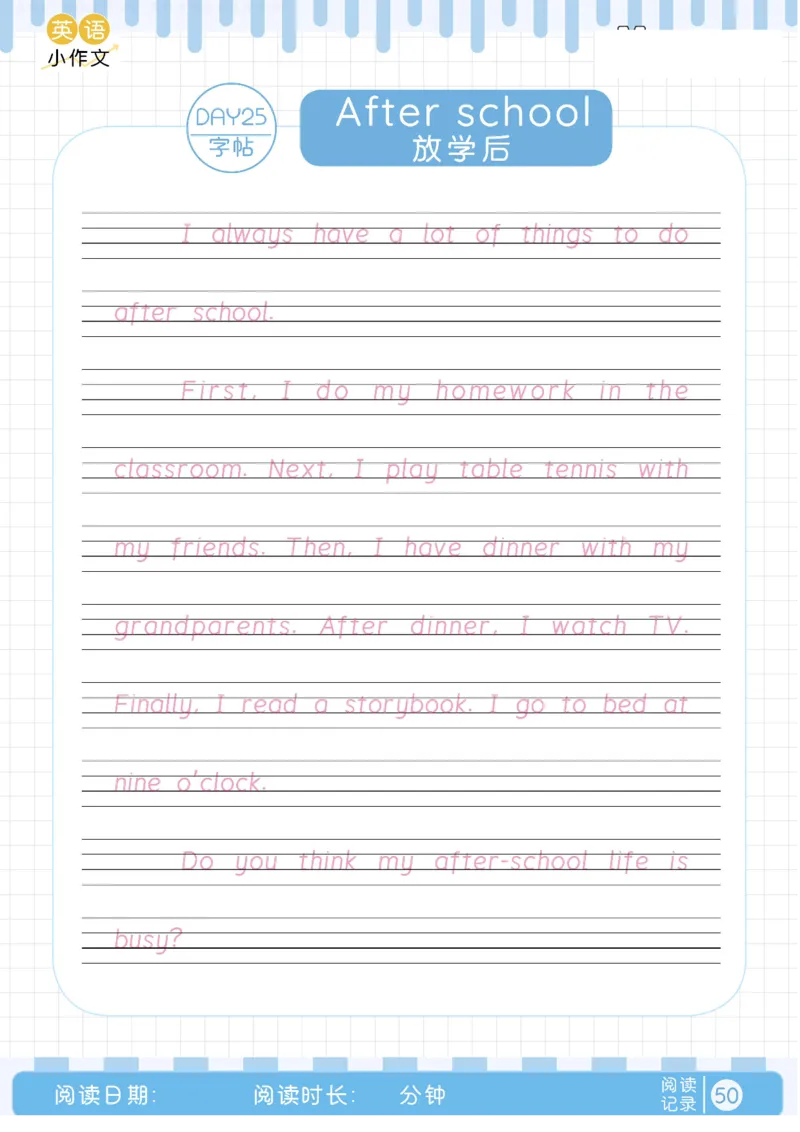 英语
小作文
DAY25
字帖
After school
放学后
I always have a lot of things to do
after school.
First, I do my homework in the
classroom. Next, I play table tennis with
my friends. Then, I have dinner with my
grandparents. After dinner, I watch TV.
Finally, I read a storybook. I go to bed at
nine o'clock.
Do you think my after-school life is
busy?
阅读日期: 阅读时长: 分钟
阅读
记录
50